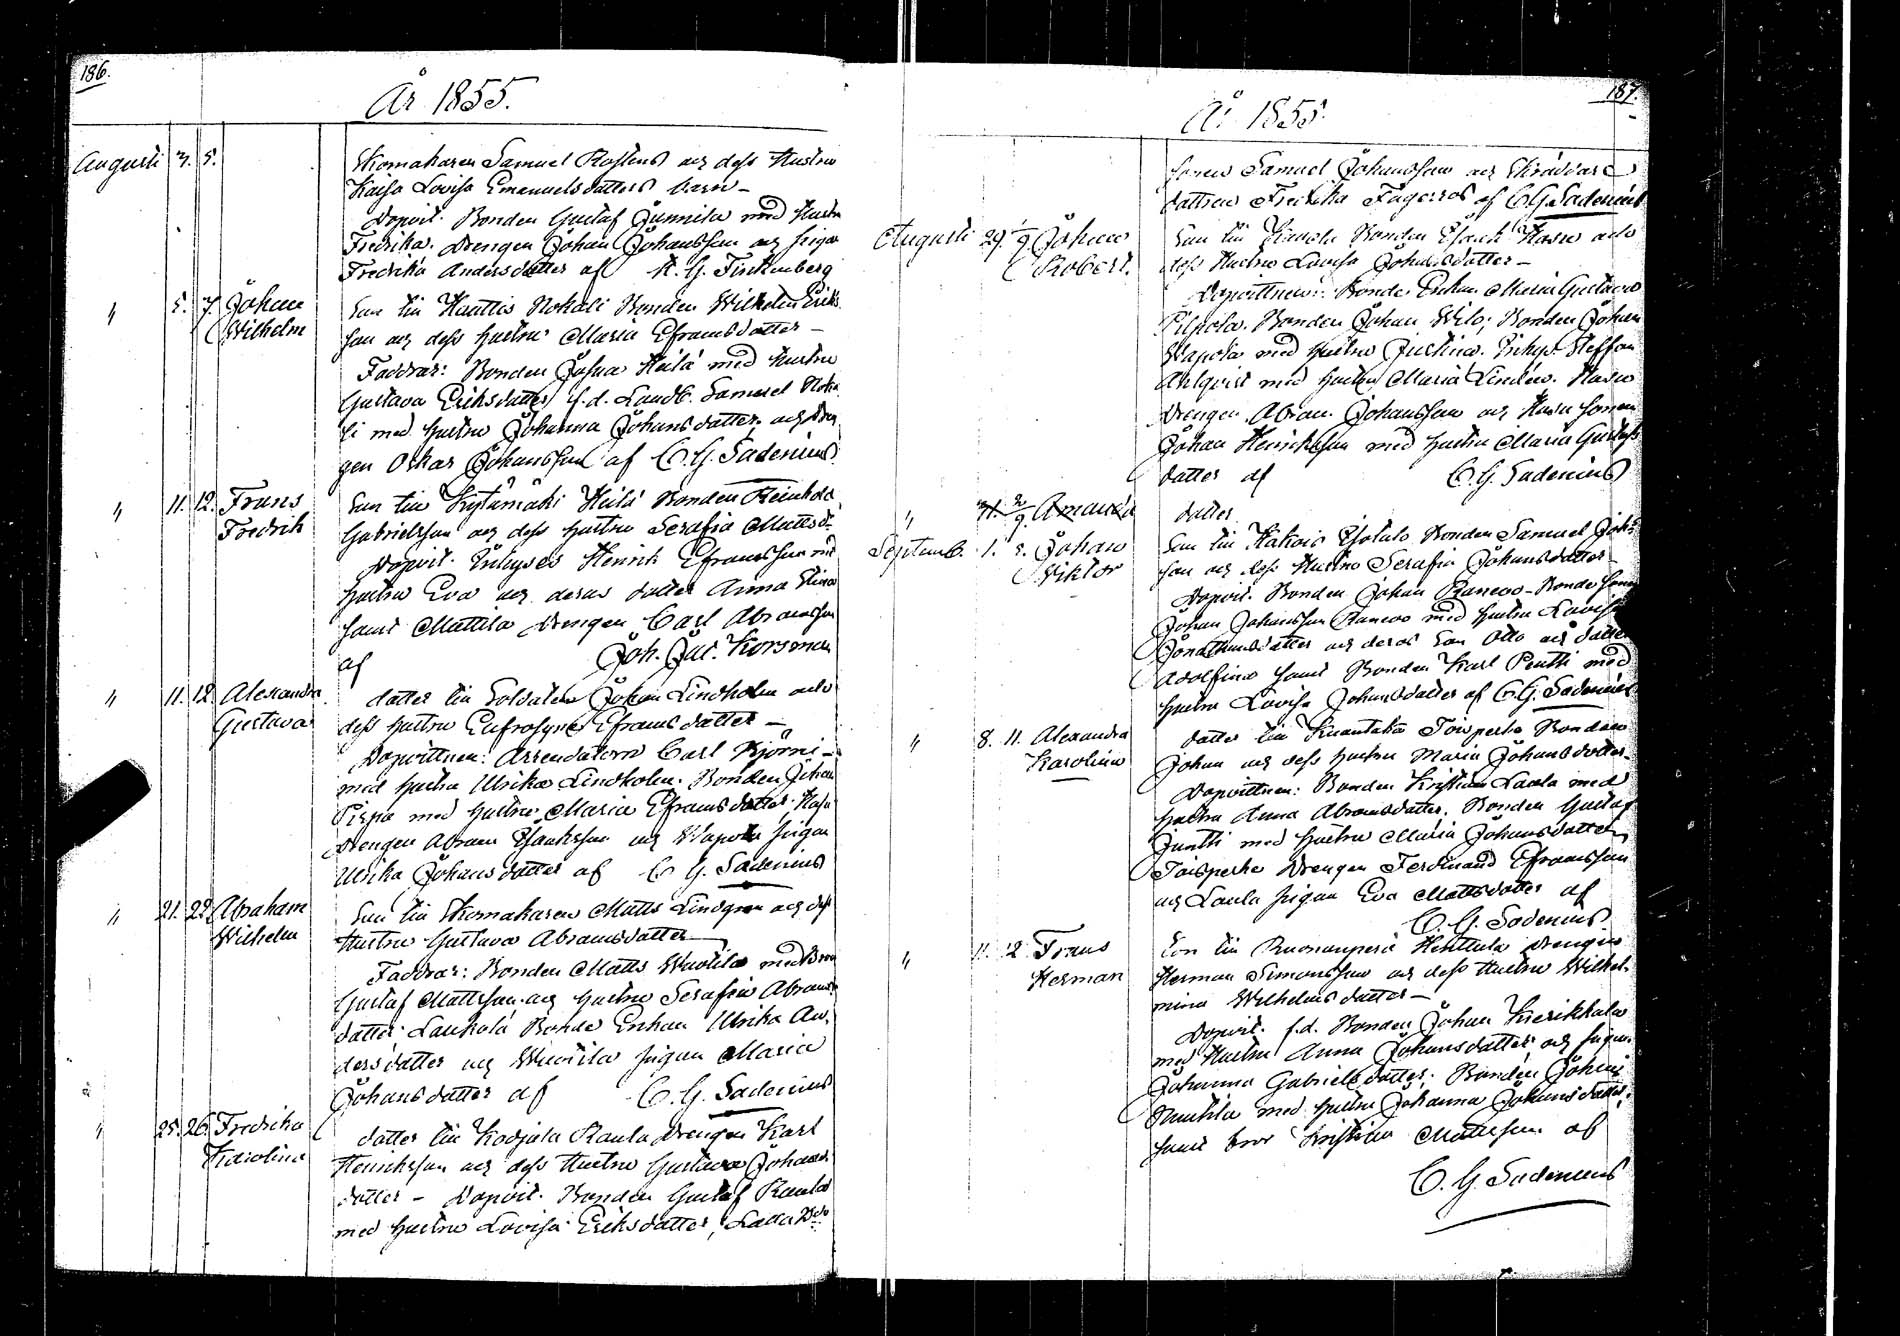 186.
År 1855.
Augusti 3. 5. Skomakaren Samuel Rostens och dess Hustru
Kaisa Lovisa Emanuelsdotters barn –
Dopvit. Bonden Gustaf Junnila med Hustru
Fredrika. Drengen Johan Johansson och pigan
Fredrika Andersdotter af K. G. Finkenberg
" 5. 7. Johan Son till Hauttis Nokali Bonden Wilhelm Eriks
Wilhelm son och dess hustru Maria Eframsdotter –
Faddrar: Bonden Josua Heilä med hustru
Gustava Eriksdotter, f.d. Landb. Samuel
si med hustru Johanna Johansdotter och Dren
gen Oskar Johansson af C. G. Sadenius
" 11. 12. Frans Son till Kylämäki Heilä Bonden Reinhold
Fredrik Gabrielsson och dess hustru Serafia Mattsd:r
Dopvit. Enhyses Henrik Eframsson med
hustru Eva och deras dotter Anna Stina
samt Mattila Drengen Carl Abramsson
af Joh. Jac. Korsman
" 11. 12. Alexandra dotter till Soldaten Johan Lindholm och
Gustava dess hustru Eufrosyne Eframsdotter –
Dopvittnen: Arrendatorn Carl Björni –
med hustru Ulrika Lindholm. Bonden Johan
Pispa med hustru Maria Eframsdotter.
Drengen Abram Isaksson och Wapola pigan
Ulrika Johansdotter af C. G. Sadenius
" 21. 22. Abraham Son till Skomakaren Matts Lindgren och dess
Wilhelm Hustru Gustava Abramsdotter
Faddrar: Bonden Matts Wuotila med
Gustaf Mattsson och hustru Serafia Abrams
dotter; Laukola Bonde Enkan Ulrika An-
dersdotter och Wuotila pigan Maria
Johansdotter af C. G. Sadenius
" 25. 26. Fredrika dotter till Kodjala Raula Drengen Karl
Karolina Henriksson och dess Hustru Gustava Johans
dotter – Dopvit. Bonden Gustaf Raula
med hustru Lovisa Eriksdotter,
187.
År 1855.
sonen Samuel Johansson och Skräddare
dottren Fredrika Fagerros af C. G. Sadenius
Augusti 29. 1/9 Johan Son till Bonden Isaak Kasu och
Robert. dess Hustru Lovisa Johansdotter –
Dopvittnen: Bonde Enkan Maria Gustava
Pilpola. Bonden Johan Wilo; Bonden Johan
Wapola med hustru Justina. Inhys. Steffan
Ahlqvist med hustru Maria Lindén. Kasu
Drengen Abram Johansson och Kasu sonen
Johan Henriksson med hustru Maria Gustafs
dotter af C. G. Sadenius
" 31. 2/9. Amanda dotter
Septemb. 1. 2. Johan Son till Kakois Isotalo Bonden Samuel Johs
Viktor son och dess Hustru Serafia Johansdotter
Dopvit. Bonden Johan Rancoo – Bonde sonen
Johan Johansson Rancoo med hustru Lovisa
Jonathansdotter och deras Son Otto och dotter
Adolfina samt Bonden Karl Pentti med
hustru Lovisa Johansdotter af C. G. Sadenius
" 8. 11. Alexandra dotter till Toisperko Bonden
Karolina Johan och dess hustru Maria Johansdotter.
Dopvittnen: Bonden Kristian Laula med
hustru Anna Abramsdotter. Bonden Gustaf
Juntti med hustru Maria Johansdotter,
Toisperko Drengen Ferdinand Eframsson
och Laula pigan Eva Mattsdotter af
C. G. Sadenius
" 11. 12. Frans Son till Ruonanperä Henttula Drengen
Herman Herman Simonsson och dess Hustru Wilhel-
mina Wilhelmsdotter –
Dopvit. f.d. Bonden Johan Kierikkala
med Hustru Anna Johansdotter och pigan
Johanna Gabrielsdotter. Bonden Johan
med hustru Johanna Johansdotter,
samt bror Kristian Mattsson af
C. G. Sadenius